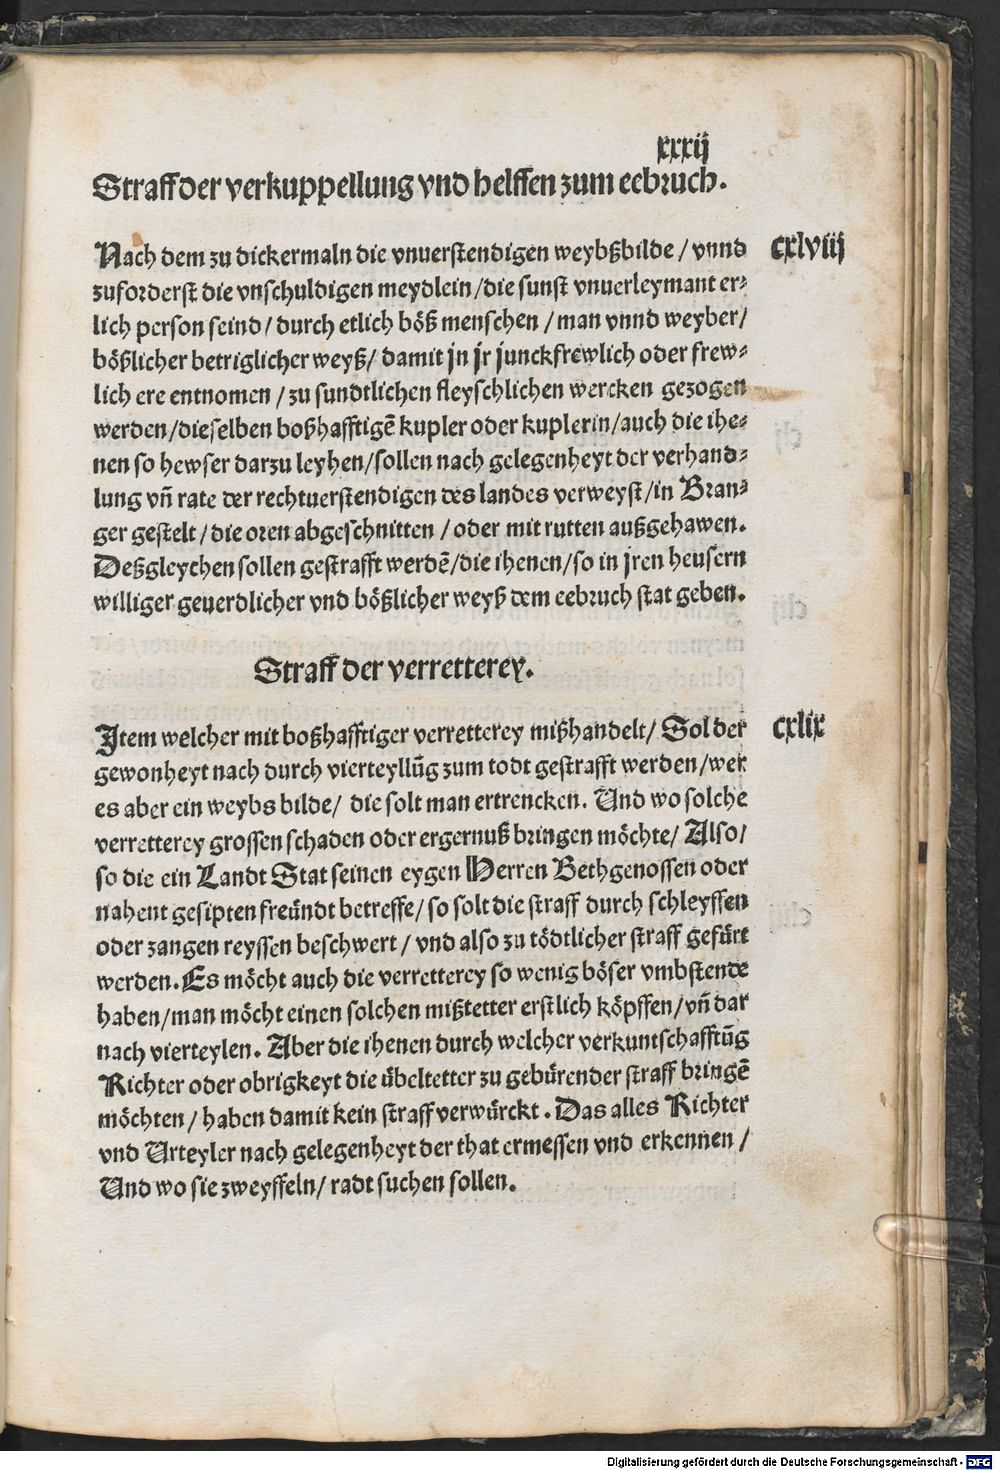 xxxij
Straff der verkuppellung vnd helffen zum eebruch.
Nach dem zu dickermaln die vnuerstendigen weybßbilde / vnnd
cxlviij
zuforderst die vnschuldigen meydlein / die sunst vnuerleymant er⸗
lich person seind / durch etlich böß menschen / man vnnd weyber /
bößlicher betriglicher weyß / damit jn jr junckfrewlich oder frew⸗
lich ere entnomen / zu sundtlichen fleyschlichen wercken gezogen
werden / dieselben boßhafftigē kupler oder kuplerin / auch die ihe⸗
nen so hewser darzu leyhen / sollen nach gelegenheyt der verhand⸗
lung vn̄ rate der rechtuerstendigen des landes verweyst / in Bran⸗
ger gestelt / die oren abgeschnitten / oder mit rutten außgehawen.
Deßgleychen sollen gestrafft werdē / die ihenen / so in jren heusern
williger geuerdlicher vnd bößlicher weyß dem eebruch stat geben.
Straff der verretterey.
Item welcher mit boßhafftiger verretterey mißhandelt / Sol der
cxlix
gewonheyt nach durch vierteyllūg zum todt gestrafft werden / wer
es aber ein weybs bilde / die solt man ertrencken. Und wo solche
verretterey grossen schaden oder ergernuß bringen möchte / Also /
so die ein Landt Stat seinen eygen Herren Bethgenossen oder
nahent gesipten freündt betreffe / so solt die straff durch schleyffen
oder zangen reyssen beschwert / vnd also zu tödtlicher straff gefürt
werden. Es möcht auch die verretterey so wenig böser vmbstende
haben / man möcht einen solchen mißtetter erstlich köpffen / vn̄ dar
nach vierteylen. Aber die ihenen durch welcher verkuntschafftūg
Richter oder obrigkeyt die übeltetter zu gebürender straff bringē
möchten / haben damit kein straff verwürckt. Das alles Richter
vnd Urteyler nach gelegenheyt der that ermessen vnd erkennen /
Und wo sie zweyffeln / radt suchen sollen.
Digitalisierung gefördert durch die Deutsche Forschungsgemeinschaft - DFG